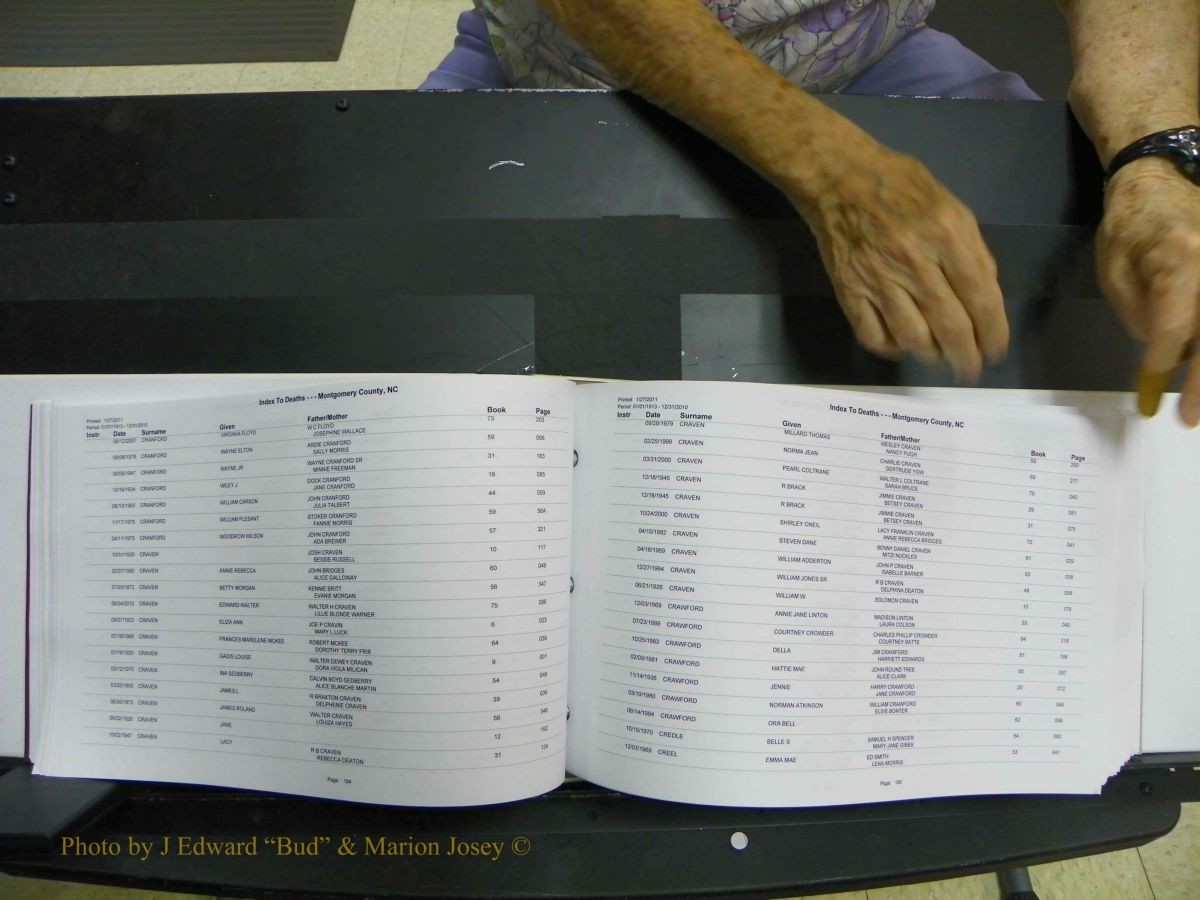 Index To Deaths - - - Montgomery County, NC
Printed: 1/27/2011
Period: 01/01/1913 - 12/31/2010
Instr Date Surname Given Father/Mother Book Page
06/12/2007 CRANFORD VIRGINIA FLOYD W C FLOYD 73 203
JOSEPHINE WALLACE
09/08/1978 CRANFORD WAYNE ELTON ARDIE CRANFORD 59 056
SALLY MORRIS
06/09/1947 CRANFORD WAYNE JR WAYNE CRANFORD SR 31 183
MINNIE FREEMAN
10/19/1934 CRANFORD WILEY J DOCK CRANFORD 18 085
JANE CRANFORD
08/13/1960 CRANFORD WILLIAM CARSON JOHN CRANFORD 44 059
JULIA TALBERT
11/17/1978 CRANFORD WILLIAM PLESANT STOKER CRANFORD 59 56A
FANNIE MORRIS
04/11/1975 CRANFORD WOODROW WILSON JOHN CRANFORD 57 321
ADA BREWER
CRAVEN JOSH CRAVEN 10 117
BESSIE RUSSELL
02/27/1980 CRAVEN ANNIE REBECCA JOHN BRIDGES 60 048
ALICE GALLOWAY
07/20/1973 CRAVEN BETTY MORGAN KENNIE BRITT 56 347
EVANIE MORGAN
06/04/2010 CRAVEN EDWARD WALTER WALTER H CRAVEN 75
LILLIE BLONDE WARNER
CRAVEN ELIZA ANN JOE P CRAVIN 6 023
MARY L LUCK
07/18/1988 CRAVEN FRANCES MARELENE MCKEE ROBERT MCKEE 64 039
DOROTHY TERRY FRIX
01/18/1925 CRAVEN GADIS LOUISE WALTER DEWEY CRAVEN 9 001
DORA VIOLA MILICAN
03/12/1970 CRAVEN INA SEDBERRY CALVIN BOYD SEDBERRY 54 048
ALICE BLANCHE MARTIN
03/20/1955 CRAVEN JAMES L R BRAXTON CRAVEN 39 036
DELPHENIE CRAVEN
08/26/1973 CRAVEN JAMES ROLAND WALTER CRAVEN 56 348
LOUIZA HAYES
09/02/1928 CRAVEN JANE 12 192
10/02/1947 CRAVEN LACY R B CRAVEN 31 134
REBECCA DEATON
Page: 184
Index To Deaths - - - Montgomery County, NC
Printed: 1/27/2011
Period: 01/01/1913 - 12/31/2010
Instr Date Surname Given Father/Mother Book Page
09/28/1979 CRAVEN MILLARD THOMAS WESLEY CRAVEN 59 293
NANCY PUGH
02/25/1999 CRAVEN NORMA JEAN CHARLIE CRAVEN 69 217
GERTRUDE YOW
03/31/2000 CRAVEN PEARL COLTRANE WALTER L COLTRANE 70 040
SARAH BRUCE
12/18/1945 CRAVEN R BRACK JIMMIE CRAVEN 29 051
BETSEY CRAVEN
12/18/1945 CRAVEN R BRACK JIMMIE CRAVEN 31 075
BETSEY CRAVEN
10/24/2000 CRAVEN SHIRLEY ONEIL LACY FRANKLIN CRAVEN 70 041
ANNIE REBECCA BRIDGES
04/15/1982 CRAVEN STEVEN DANE BENNY DANIEL CRAVEN 61 029
MITZI NUCKLES
04/16/1969 CRAVEN WILLIAM ADDERTON JOHN P CRAVEN 53 038
ISABELLE BARNER
12/27/1964 CRAVEN WILLIAM JONES SR R B CRAVEN 48 058
DELPHINA DEATON
06/21/1926 CRAVEN WILLIAM W SOLOMON CRAVEN 10 179
12/03/1969 CRAWFORD ANNIE JANE LINTON MADISON LINTON 53 042
LAURA COLSON
07/23/1989 CRAWFORD COURTNEY CROWDER CHARLES PHILLIP CROWDER 54 218
COURTNEY BATTE
10/25/1983 CRAWFORD DELLA JIM CRAWFORD 61 198
HARRIETT EDWARDS
02/09/1981 CRAWFORD HATTIE MAE JOHN ROUND TREE 60 287
ALICE CLARK
11/14/1936 CRAWFORD JENNIE HARRY CRAWFORD 20 072
JANE CRAWFORD
03/19/1980 CRAWFORD NORMAN ATKINSON WILLIAM CRAWFORD 60 049
ELSIE BONTER
06/14/1984 CRAWFORD ORA BELL 62 056
10/15/1970 CREDLE BELLE S SAMUEL H SPENCER 54 050
MARY JANE GIBBS
12/03/1969 CREEL EMMA MAE ED SMITH 53 041
LENA MORRIS
Page: 185
Photo by J Edward “Bud” & Marion Josey ©